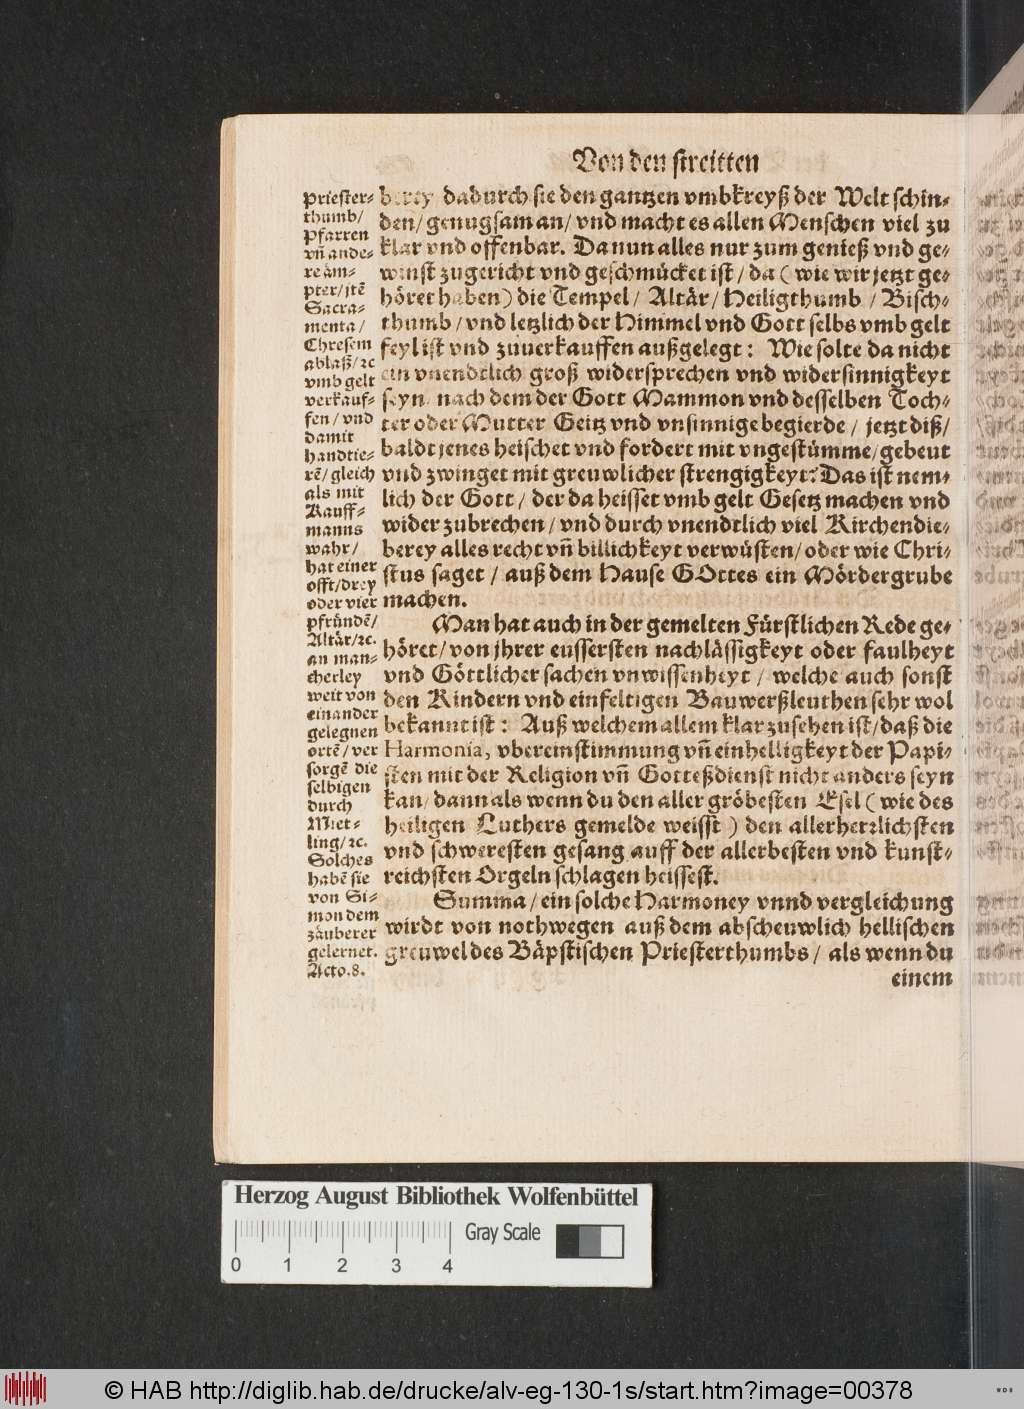 Von den streitten
Priester-
thumb/
Pfarren
vñ ande-
re äm-
pter/jtē
Sacra-
menta/
Chresem
ablaß/ꝛc
vmb gelt
verkauf-
fen/vnd
damit
handtie-
rē/gleich
als mit
Kauff-
manns
wahr/
hat einer
offt/drey
oder vier
pfründē/
Altär/ꝛc.
an man-
cherley
weit von
einander
gelegnen
ortē/ver
sorgē die
selbigen
durch
Miet-
ling/ꝛc.
Solches
habē sie
von Si-
mon dem
zäuberer
gelernet.
Acto.8.
berey dadurch sie den gantzen vmbkreyß der Welt schin-
den/genugsam an/vnd macht es allen Menschen viel zu
klar vnd offenbar. Da nun alles nur zum genieß vnd ge-
winst zugericht vnd geschmücket ist/da (wie wir jetzt ge-
höret haben) die Tempel/ Altär/ Heiligthumb/ Bisch-
thumb/vnd letzlich der Himmel vnd Gott selbs vmb gelt
feyl ist vnd zuuerkauffen außgelegt: Wie solte da nicht
ein vnendtlich groß widersprechen vnd widersinnigkeyt
seyn nach dem der Gott Mammon vnd desselben Toch-
ter oder Mutter Geitz vnd vnsinnige begierde/ jetzt diß/
baldt jenes heischet vnd fordert mit vngestümme/gebeut
vnd zwinget mit greuwlicher strengigkeyt? Das ist nem-
lich der Gott/ der da heisset vmb gelt Gesetz machen vnd
wider zubrechen/vnd durch vnendtlich viel Kirchendie-
berey alles recht vñ billichkeyt verwüsten/oder wie Chri-
stus saget/ auß dem Hause GOttes ein Mördergrube
machen.
Man hat auch in der gemelten Fürstlichen Rede ge-
höret/von jhrer eussersten nachlässigkeyt oder faulheyt
vnd Göttlicher sachen vnwissenheyt/ welche auch sonst
den Kindern vnd einfeltigen Bauwerßleuthen sehr wol
bekannt ist: Auß welchem allem klar zusehen ist/daß die
Harmonia, vbereinstimmung vñ einhelligkeyt der Papi-
sten mit der Religion vñ Gotteßdienst nicht anders seyn
kan/dann als wenn du den aller gröbesten Esel (wie des
heiligen Luthers gemelde weisst) den allerherꝛlichsten
vnd schweresten gesang auff der allerbesten vnd kunst-
reichsten Orgeln schlagen heissest.
Summa/ein solche Harmoney vnnd vergleichung
wirdt von nothwegen auß dem abscheuwlich hellischen
greuwel des Bäpstischen Priesterthumbs/ als wenn du
einem
Herzog August Bibliothek Wolfenbüttel
Gray Scale
0 1 2 3 4
© HAB http://diglib.hab.de/drucke/alv-eg-130-1s/start.htm?image=00378